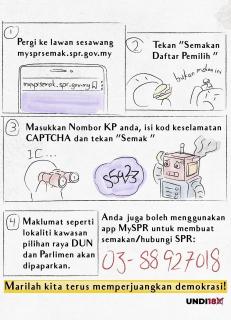 1
Pergi ke lawan sesawang
mysprsemak.spr.gov.my
mysprsemak.spr.gov.my
2
Tekan "Semakan
Daftar Pemilih"
bukan makan ini
3
Masukkan Nombor KP anda, isi kod keselamatan
CAPTCHA dan tekan "Semak"
IC...
4
Maklumat seperti
lokaliti kawasan
pilihan raya DUN
dan Parlimen akan
dipaparkan.
Anda juga boleh menggunakan
app MySPR untuk membuat
semakan/hubungi SPR:
03-88927018
Marilah kita terus memperjuangkan demokrasi!
UNDI18